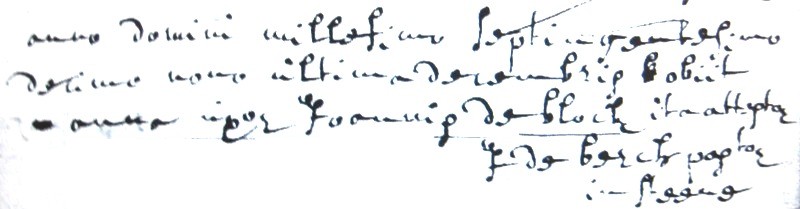 anno domini millesimo septingentesimo
decimo nono ultima decembris obiit
anna uxor Joannis de block ita attestor
J de berch pastor
in